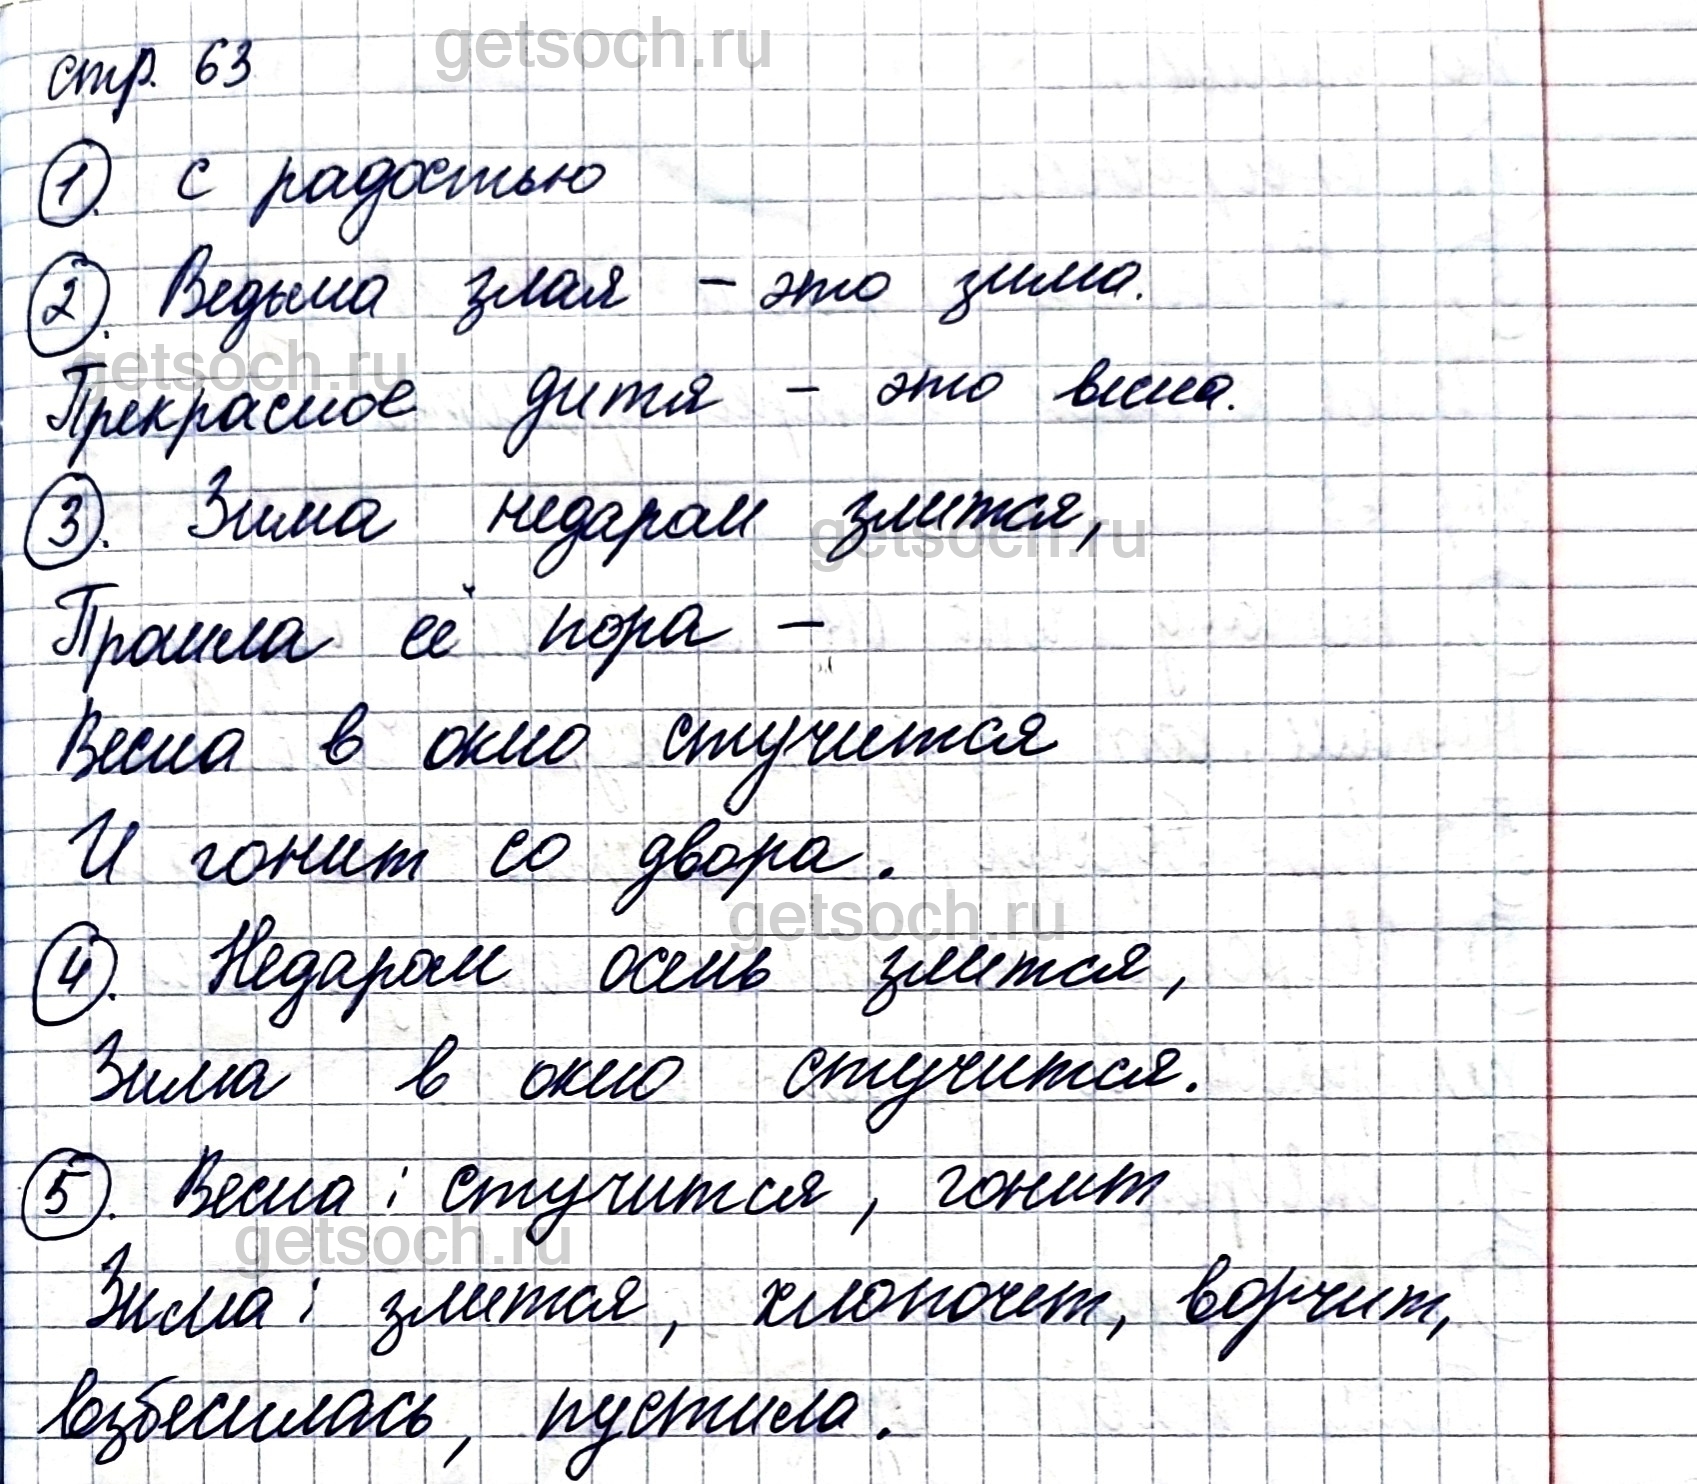 getsoch.ru
стр. 63
1. с радостью
2. Ведьма злая – это зима.
getsoch.ru
Прекрасное дитя – это весна.
3. Зима недаром злится,
getsoch.ru
Прошла её пора –
Весна в окно стучится
И гонит со двора.
getsoch.ru
4. Недаром осень злится,
Зима в окно стучится.
5. Весна: стучится, гонит
getsoch.ru
Зима: злится, хлопочет, ворчит,
взбесилась, пустила.